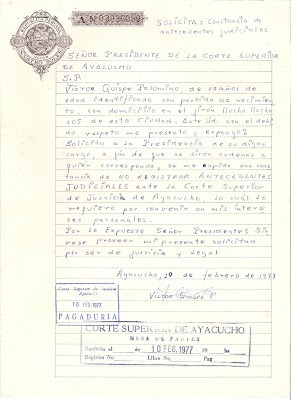 AN
SOLICITA: Constancia de
antecedentes judiciales
SEÑOR PRESIDENTE DE LA CORTE SUPERIOR
DE AYACUCHO
S.P.
Víctor Quispe Palomino, de años de
edad identificado con partida de nacimien
to, con domicilio en el Jirón
105 de esta Ciudad. Ante Ud. con el debi
do respeto me presento y expongo:
Solicito a la Presidencia de su digno
cargo, a fin de que se sirva ordenar a
quien corresponda, se me expida una cons
tancia de NO REGISTRAR ANTECEDENTES
JUDICIALES ante la Corte Superior
de Justicia de Ayacucho, lo cual lo
requiero por convenir a mis intere
ses personales.
Por lo Expuesto Señor Presidente Sír
vase proveer mi presente solicitud
por ser de justicia y legal
Ayacucho, 10 de febrero de 1977
Corte Superior de Justicia
Ayacucho
10 FEB. 1977
PAGADURIA
CORTE SUPERIOR DE AYACUCHO
MESA DE PARTES
Recibido el 10 FEB. 1977 hs
Registro No Libro No Pag